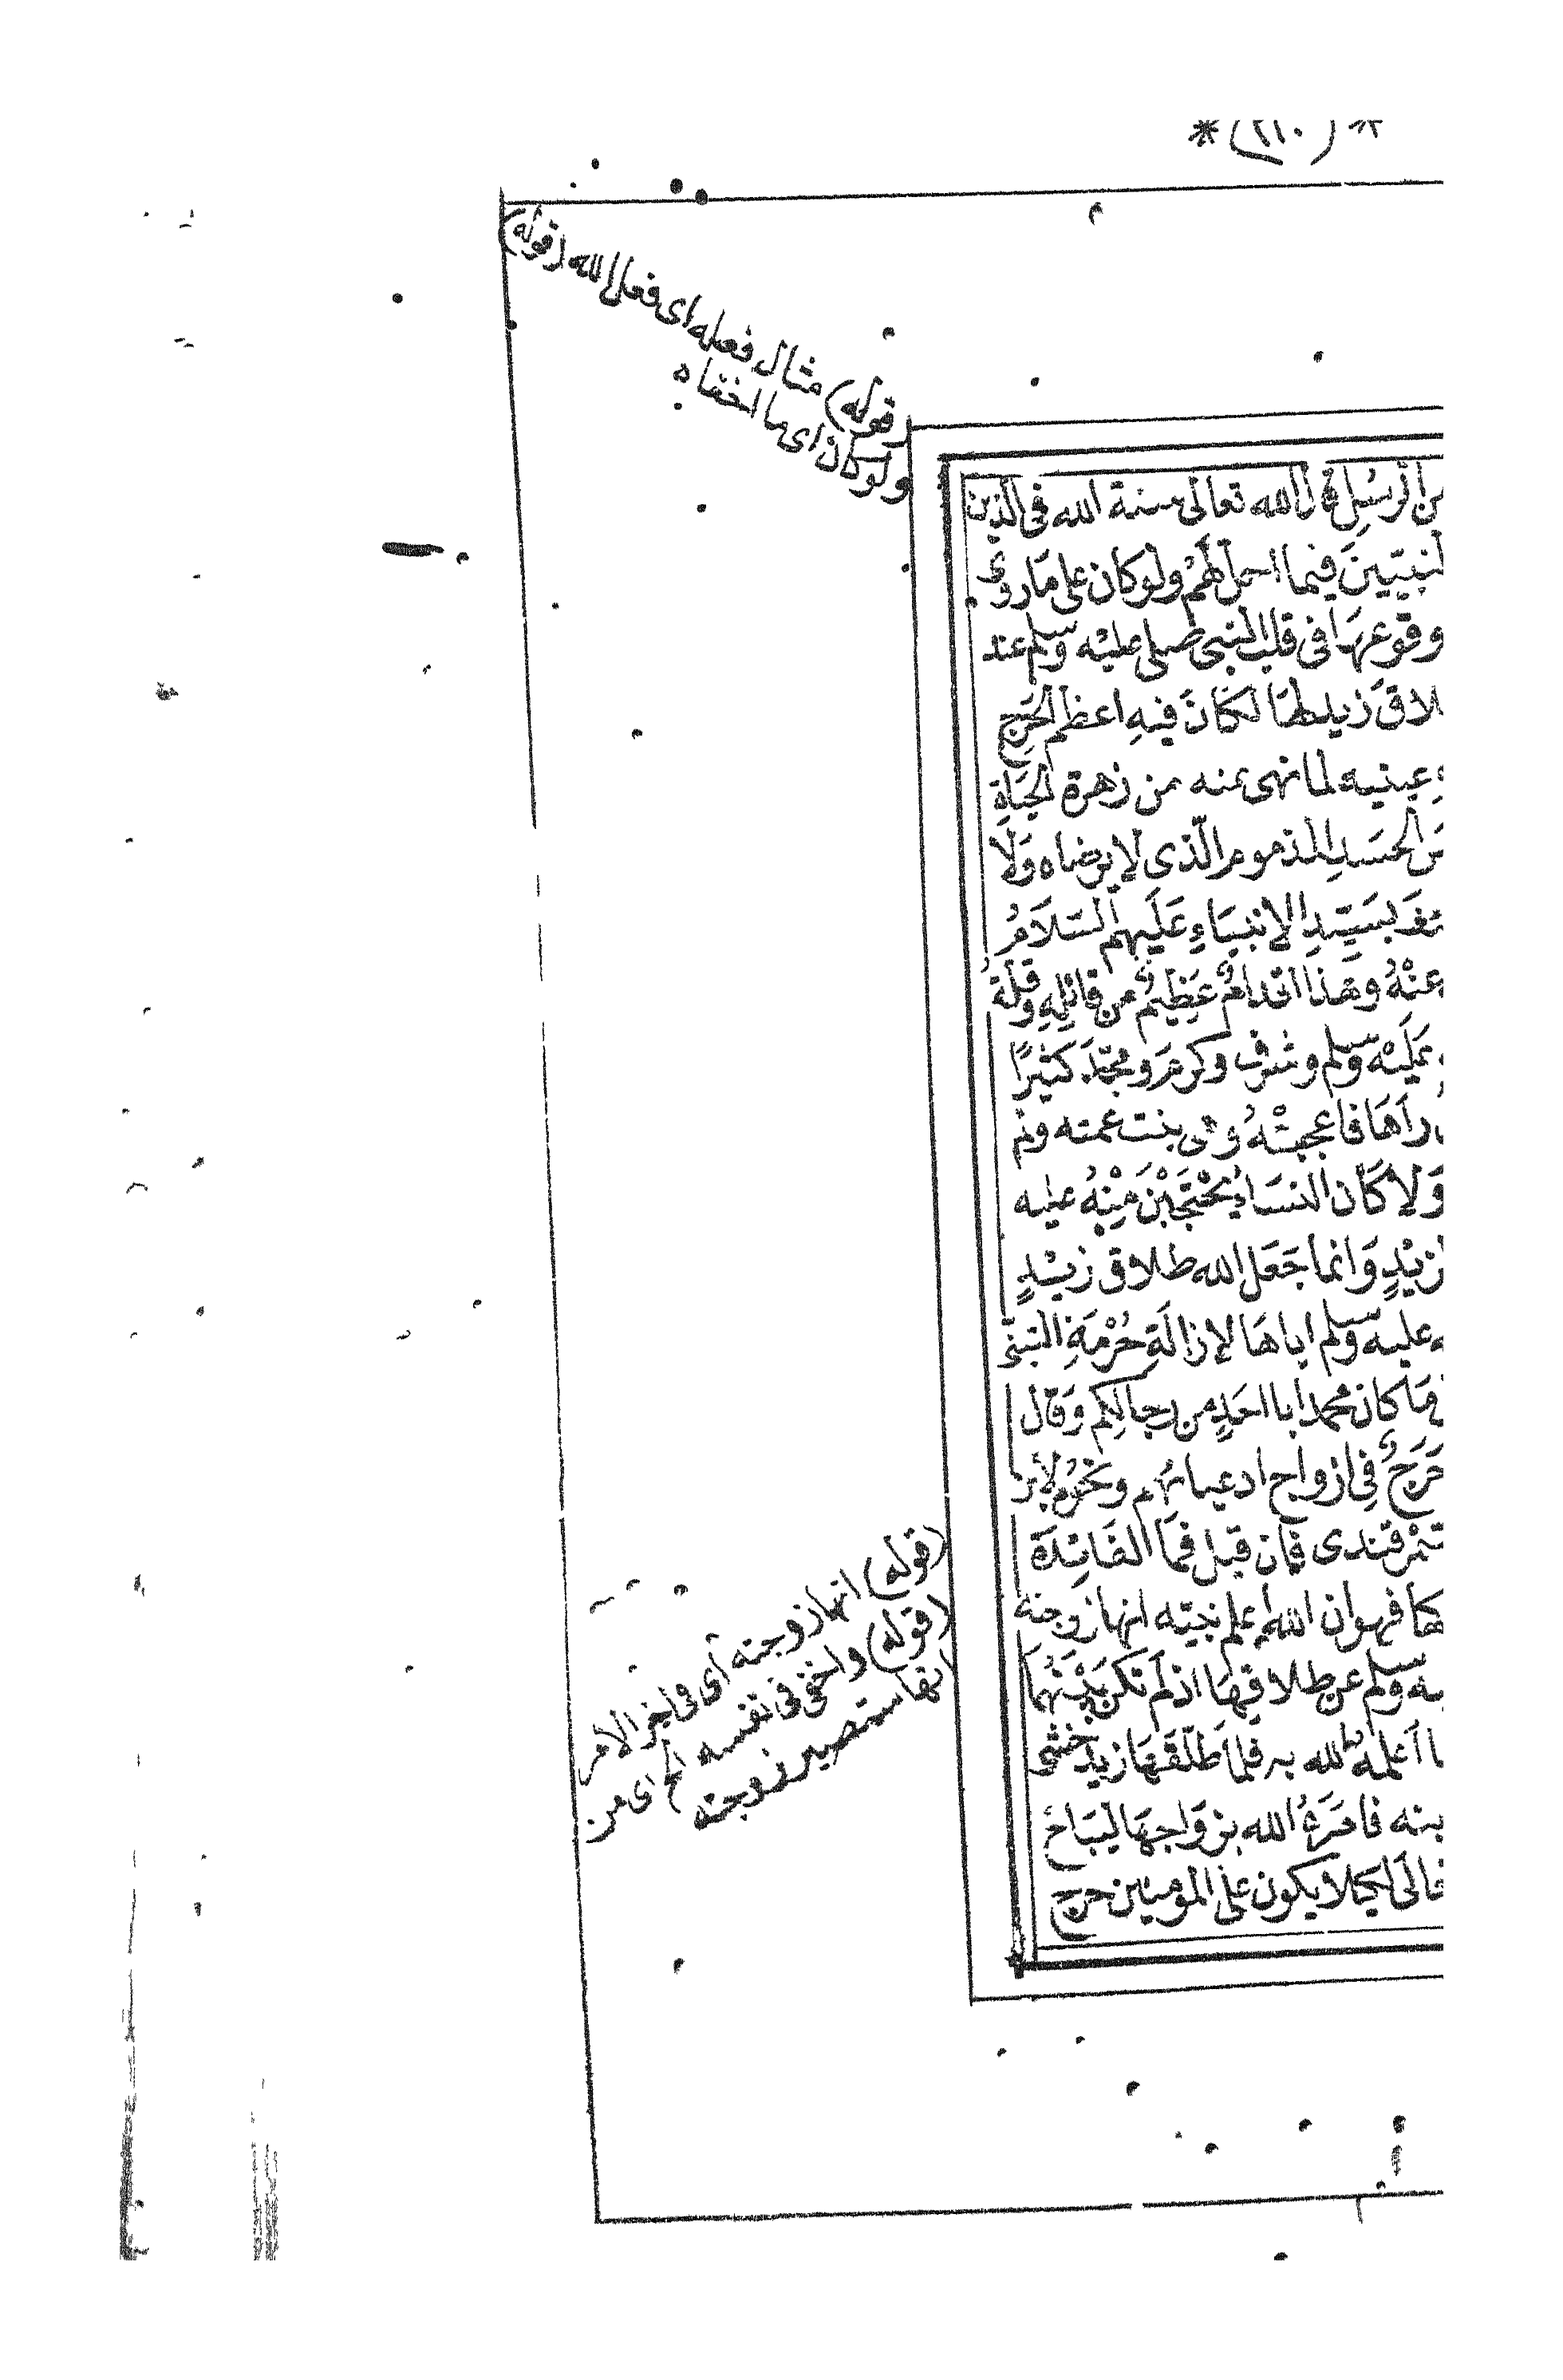 *(٢١٠)*
(قوله) مثال فعله اى فعل الله (قوله)
ولو كان اى ما اخفاه
من الرسل قال الله تعالى سنة الله فى الذين
النبيين فيما احل لهم ولو كان على ما روى
وقوعها فى قلب النبى صلى عليه وسلم عند
طلاق زيد لها لكان فيه اعظم الحرج
عينيه لما نهى عنه من زهرة الحياة
الحسد المذموم الذى لا يرضاه ولا
بسيد الانبياء عليهم السلام
عنه وهذا اقدام عظيم من قائله وقلة
عليه وسلم وشرف وكرم ومجد كثيرا
رآها فاعجبته وهى بنت عمته ولم
ولا كان النساء يحتجبن منه عليه
زيد وانما جعل الله طلاق زيد
عليه وسلم اياها لازالة حرمة التبنى
ما كان محمد ابا احد من رجالكم وقال
حرج فى ازواج ادعيائهم ونحوه لابن
قندى فان قيل فما الفائدة
فهو ان الله اعلم نبيه انها زوجته
وسلم عن طلاقها اذ لم تكن بينهما
ما اعلمه الله به فلما طلقها زيد خشى
ابنه فامره الله بزواجها ليباح
تعالى لكيلا يكون على المؤمنين حرج
(قوله) انها زوجته أى فى آخر الامر
(قوله) واخفى فى نفسه الخ اى من
انها ستصير زوجته